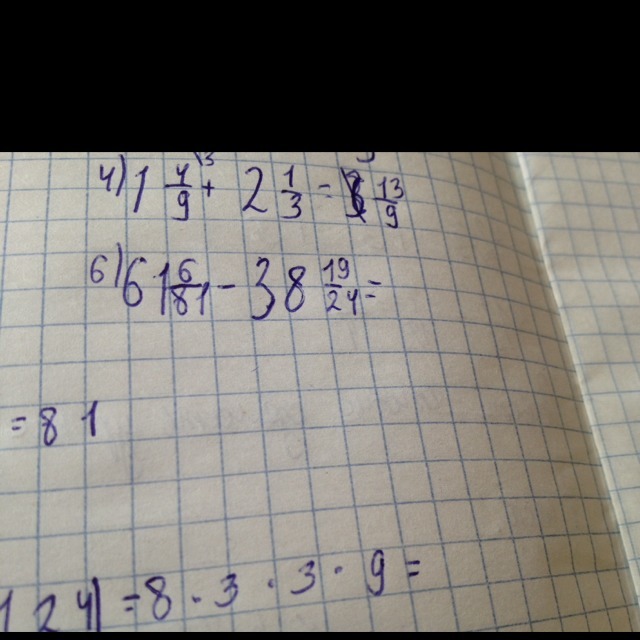 4) 1 4/9 + 2 1/3 = 13/9
6) 61 6/81 - 38 19/24 =
= 8 1
24) = 8 · 3 · 3 · 9 =